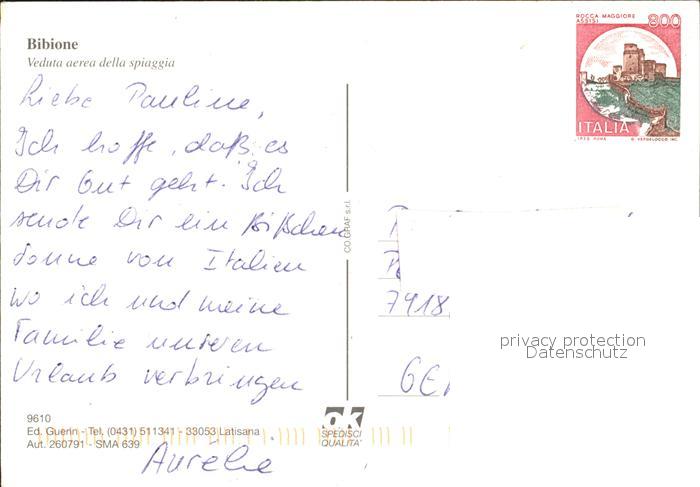 Bibione
Veduta aerea della spiaggia
ROCCA MAGGIORE
ASSISI
800
ITALIA
I.P.Z.S. ROMA
Liebe Pauline,
Ich hoffe, daß es
Dir Gut geht. Ich
sende Dir ein Bißchen
Sonne von Italien
wo ich und meine
Familie unseren
Urlaub verbringen
Aurélie
CO.GRAF s.r.l.
7918
GE
privacy protection
Datenschutz
9610
Ed. Guerin - Tel. (0431) 511341 - 33053 Latisana
Aut. 260791 - SMA 639
ok
SPEDISCI
QUALITA'